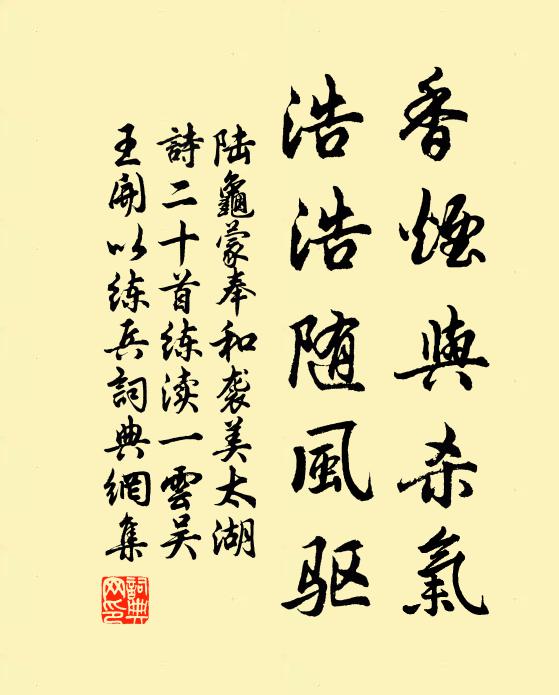 香煙與杀氣
浩浩随風驱
陆龜蒙奉和袭美太湖
詩二十首练渎一雲吴
王開以练兵詞典網集
詞典網印